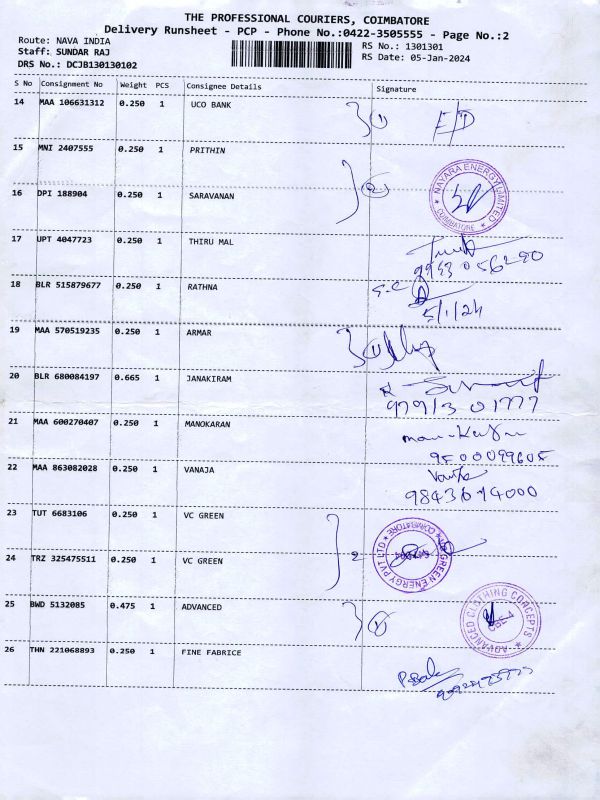 THE PROFESSIONAL COURIERS, COIMBATORE
Delivery Runsheet - PCP - Phone No.:0422-3505555 - Page No.:2
Route: NAVA INDIA
RS No.: 1301301
Staff: SUNDAR RAJ
RS Date: 05-Jan-2024
DRS No.: DCJB130130102
S No Consignment No Weight PCS Consignee Details Signature
14 MAA 106631312 0.250 1 UCO BANK 1
15 MNI 2407555 0.250 1 PRITHIN
NAYARA ENERGY LIMITED
COIMBATORE
16 DPI 188904 0.250 1 SARAVANAN
17 UPT 4047723 0.250 1 THIRU MAL
18 BLR 515879677 0.250 1 RATHNA
5/1/24
19 MAA 570519235 0.250 1 ARMAR 1
20 BLR 680084197 0.665 1 JANAKIRAM
97913 01777
21 MAA 600270407 0.250 1 MANOKARAN
9500099605
22 MAA 863082028 0.250 1 VANAJA
23 TUT 6683106 0.250 1 VC GREEN
2
GREEN ENERGY PVT LTD
COIMBATORE
24 TRZ 325475511 0.250 1 VC GREEN
25 BWD 5132085 0.475 1 ADVANCED 1
ADVANCED CLOTHING CONCEPTS
26 THN 221068893 0.250 1 FINE FABRICE